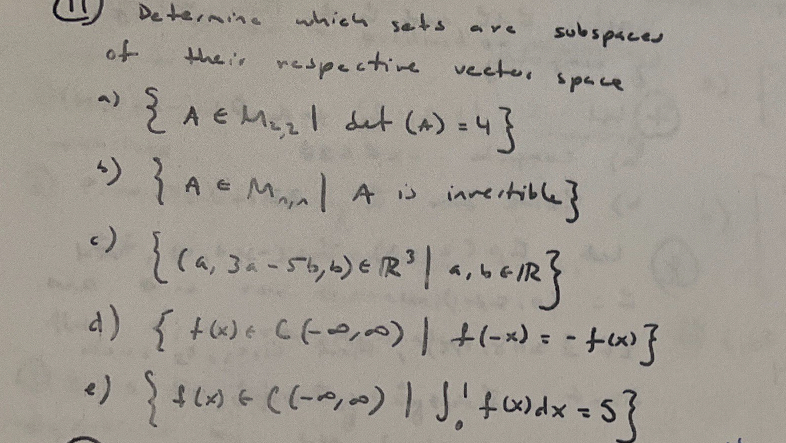 (11) Determine which sets are subspaces
of their respective vector space
a) { A ∈ M₂,₂ | det (A) = 4 }
b) { A ∈ Mₙ,ₙ | A is invertible }
c) { (a, 3a - 5b, b) ∈ ℝ³ | a, b ∈ ℝ }
d) { f(x) ∈ C (-∞, ∞) | f(-x) = - f(x) }
e) { f(x) ∈ C (-∞, ∞) | ∫₀¹ f(x) dx = 5 }